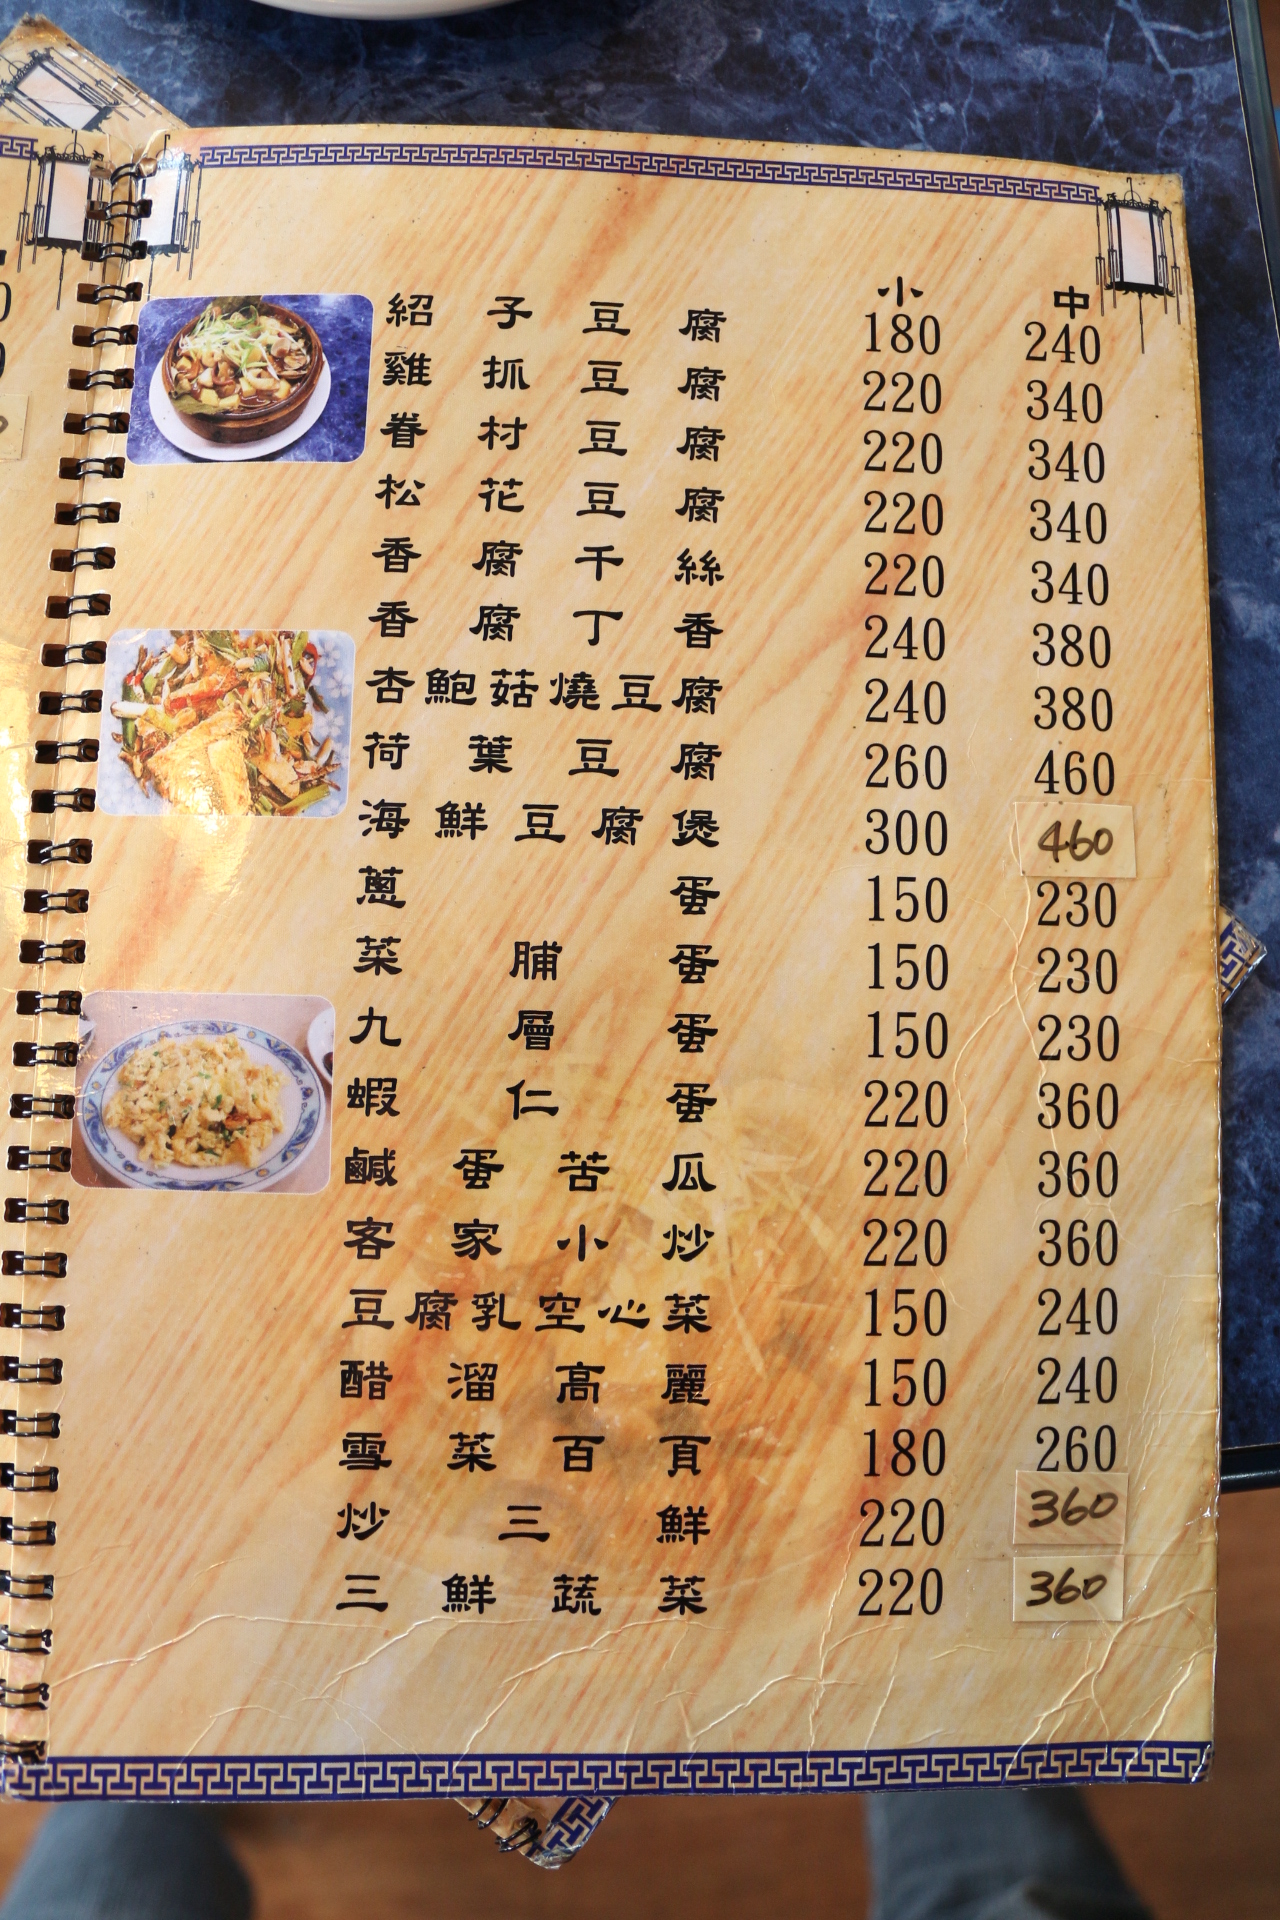 小 中
紹子豆腐 180 240
雞抓豆腐 220 340
眷村豆腐 220 340
松花豆腐 220 340
香腐千絲 220 340
香腐丁香 240 380
杏鮑菇燒豆腐 240 380
荷葉豆腐 260 460
海鮮豆腐煲 300 460
蔥蛋 150 230
菜脯蛋 150 230
九層蛋 150 230
蝦仁蛋 220 360
鹹蛋苦瓜 220 360
客家小炒 220 360
豆腐乳空心菜 150 240
醋溜高麗 150 240
雪菜百頁 180 260
炒三鮮 220 360
三鮮蔬菜 220 360